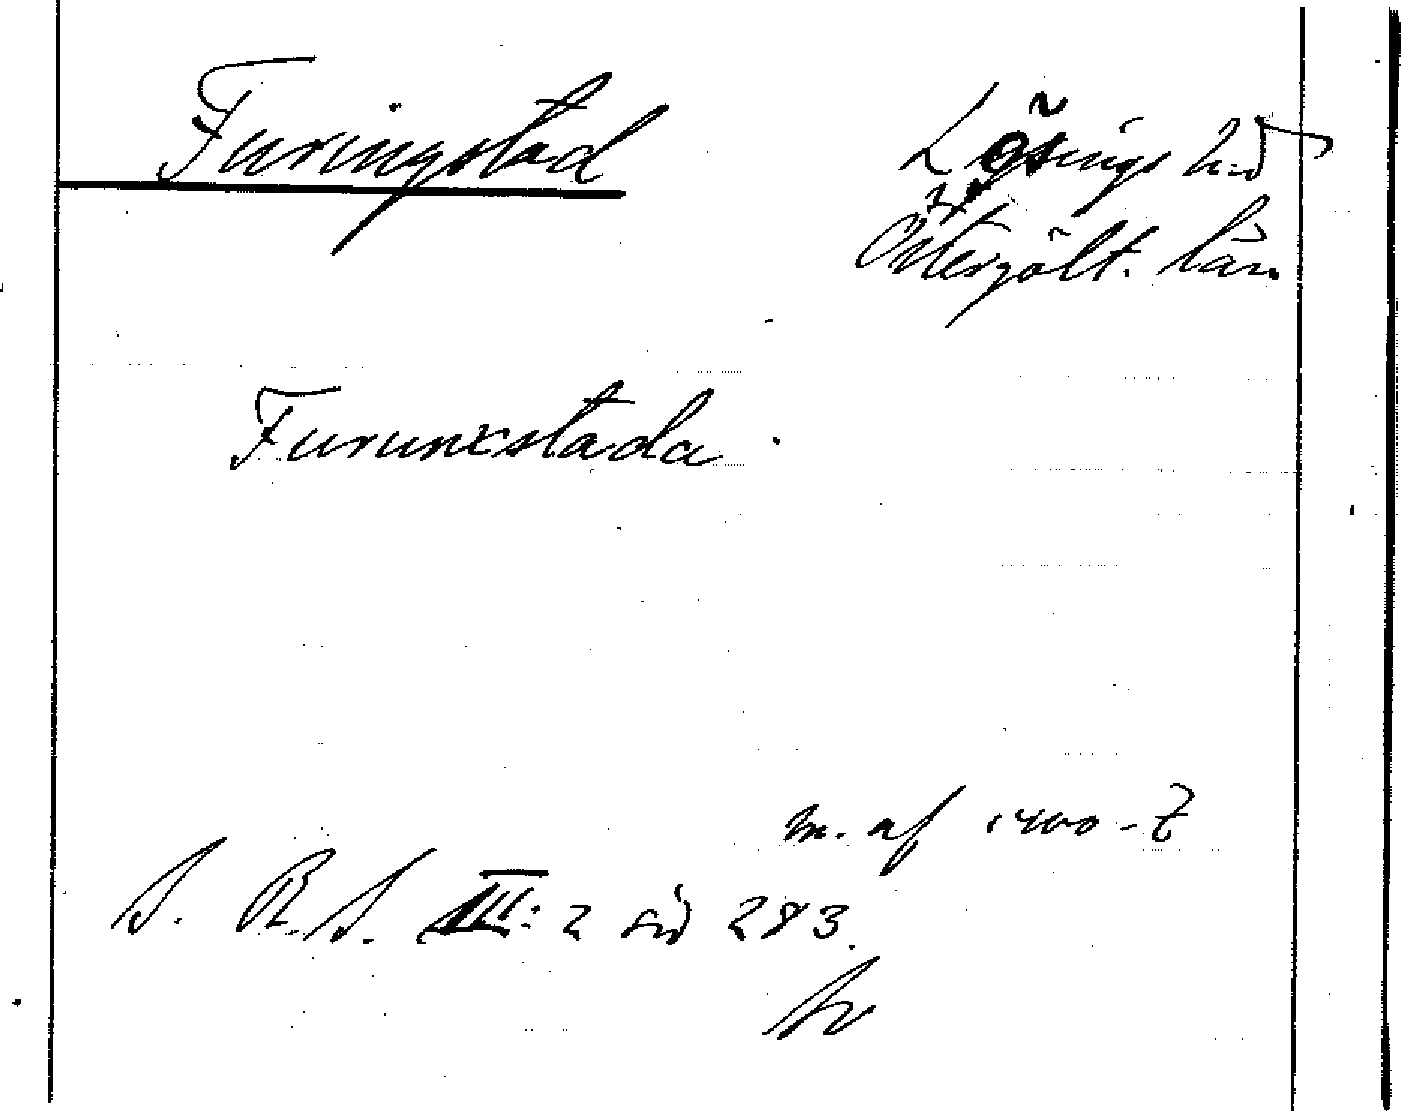 Furingstad
Lösings hd
Östergötl. län
Furunxstada
m. af 1400-t
S. R. S. III: 2 sid 283.